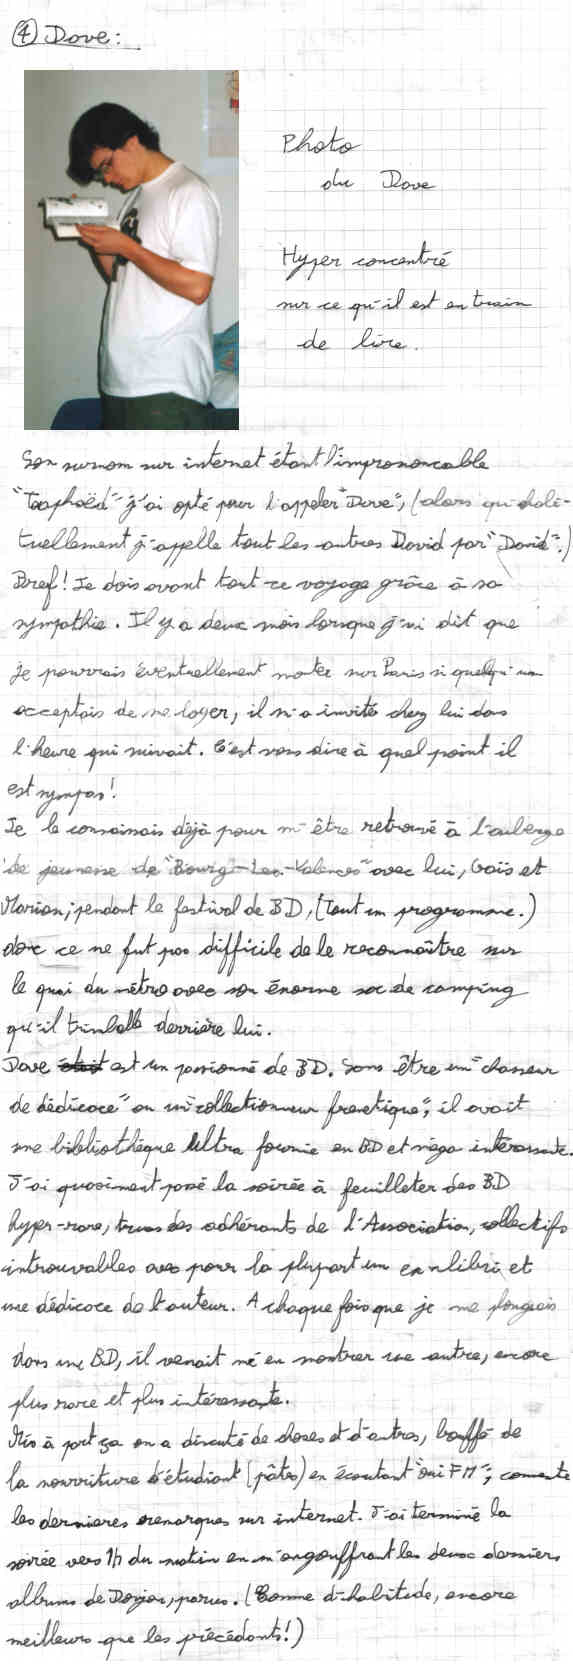 ④ Dove :
Photo
du Dove
Hyper concentré
sur ce qu'il est en train
de lire.
Son surnom sur internet étant l'imprononcable
"Taaphoëd" j'ai opté pour l'appeler "Dove", (alors qu'habi-
tuellement j'appelle tout les autres David par "David".)
Bref! Je dois avant tout ce voyage grâce à sa
sympathie. Il y a deux mois lorsque j'ai dit que
je pourrais éventuellement monter sur Paris si quelqu'un
acceptais de me loger, il m'a invité chez lui dans
l'heure qui suivait. C'est vous dire à quel point il
est sympas!
Je le connaissais déjà pour m'être retrouvé à l'auberge
de jeunesse de "Bourg-Les-Valences" avec lui, et
Marion, pendant le festival de BD, (tout un programme.)
donc ce ne fut pas difficile de le reconnaître sur
le quai du métro avec son énorme sac de camping
qu'il trimballe derrière lui.
Dove était est un passionné de BD. Sans être un "chasseur
de dédicace" ou un "collectionneur frenetique", il avait
une bibliothèque Ultra fournie en BD et méga intéressante.
J'ai quasiment passé la soirée à feuilleter des BD
hyper-rare, trucs des adhérants de l'Association, collectifs
introuvables avec pour la plupart un exnlibri et
une dédicace de l'auteur. A chaque fois que je me plongeais
dans une BD, il venait m'en montrer une autre, encore
plus rare et plus intéressante.
Mis à part ça on a discuté de choses et d'autres, bouffé de
la nourriture d'étudiant (pâtes) en écoutant "oui FM", commenté
les dernieres remarques sur internet. J'ai terminé la
soirée vers 1h du matin en m'engouffrant les deux derniers
albums de Donjon, parus. (Comme d'habitude, encore
meilleurs que les précédants!)